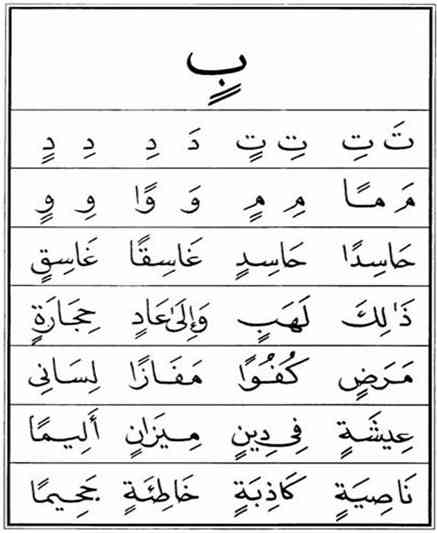 بٍ
تَ تِ تِ تٍ دَ دِ دِ دٍ
مَ مًا مِ مٍ وَ وًا وِ وٍ
حَاسِدًا حَاسِدٍ غَاسِقًا غَاسِقٍ
ذَٰلِكَ لَهَبٍ وَإِلَىٰ عَادٍ حِجَارَةٍ
مَرَضٍ كُفُوًا مَفَازًا لِسَانِى
عِيشَةٍ فِي دِينٍ مِيزَانٍ أَلِيمًا
نَاصِيَةٍ كَاذِبَةٍ خَاطِئَةٍ جَحِيمًا